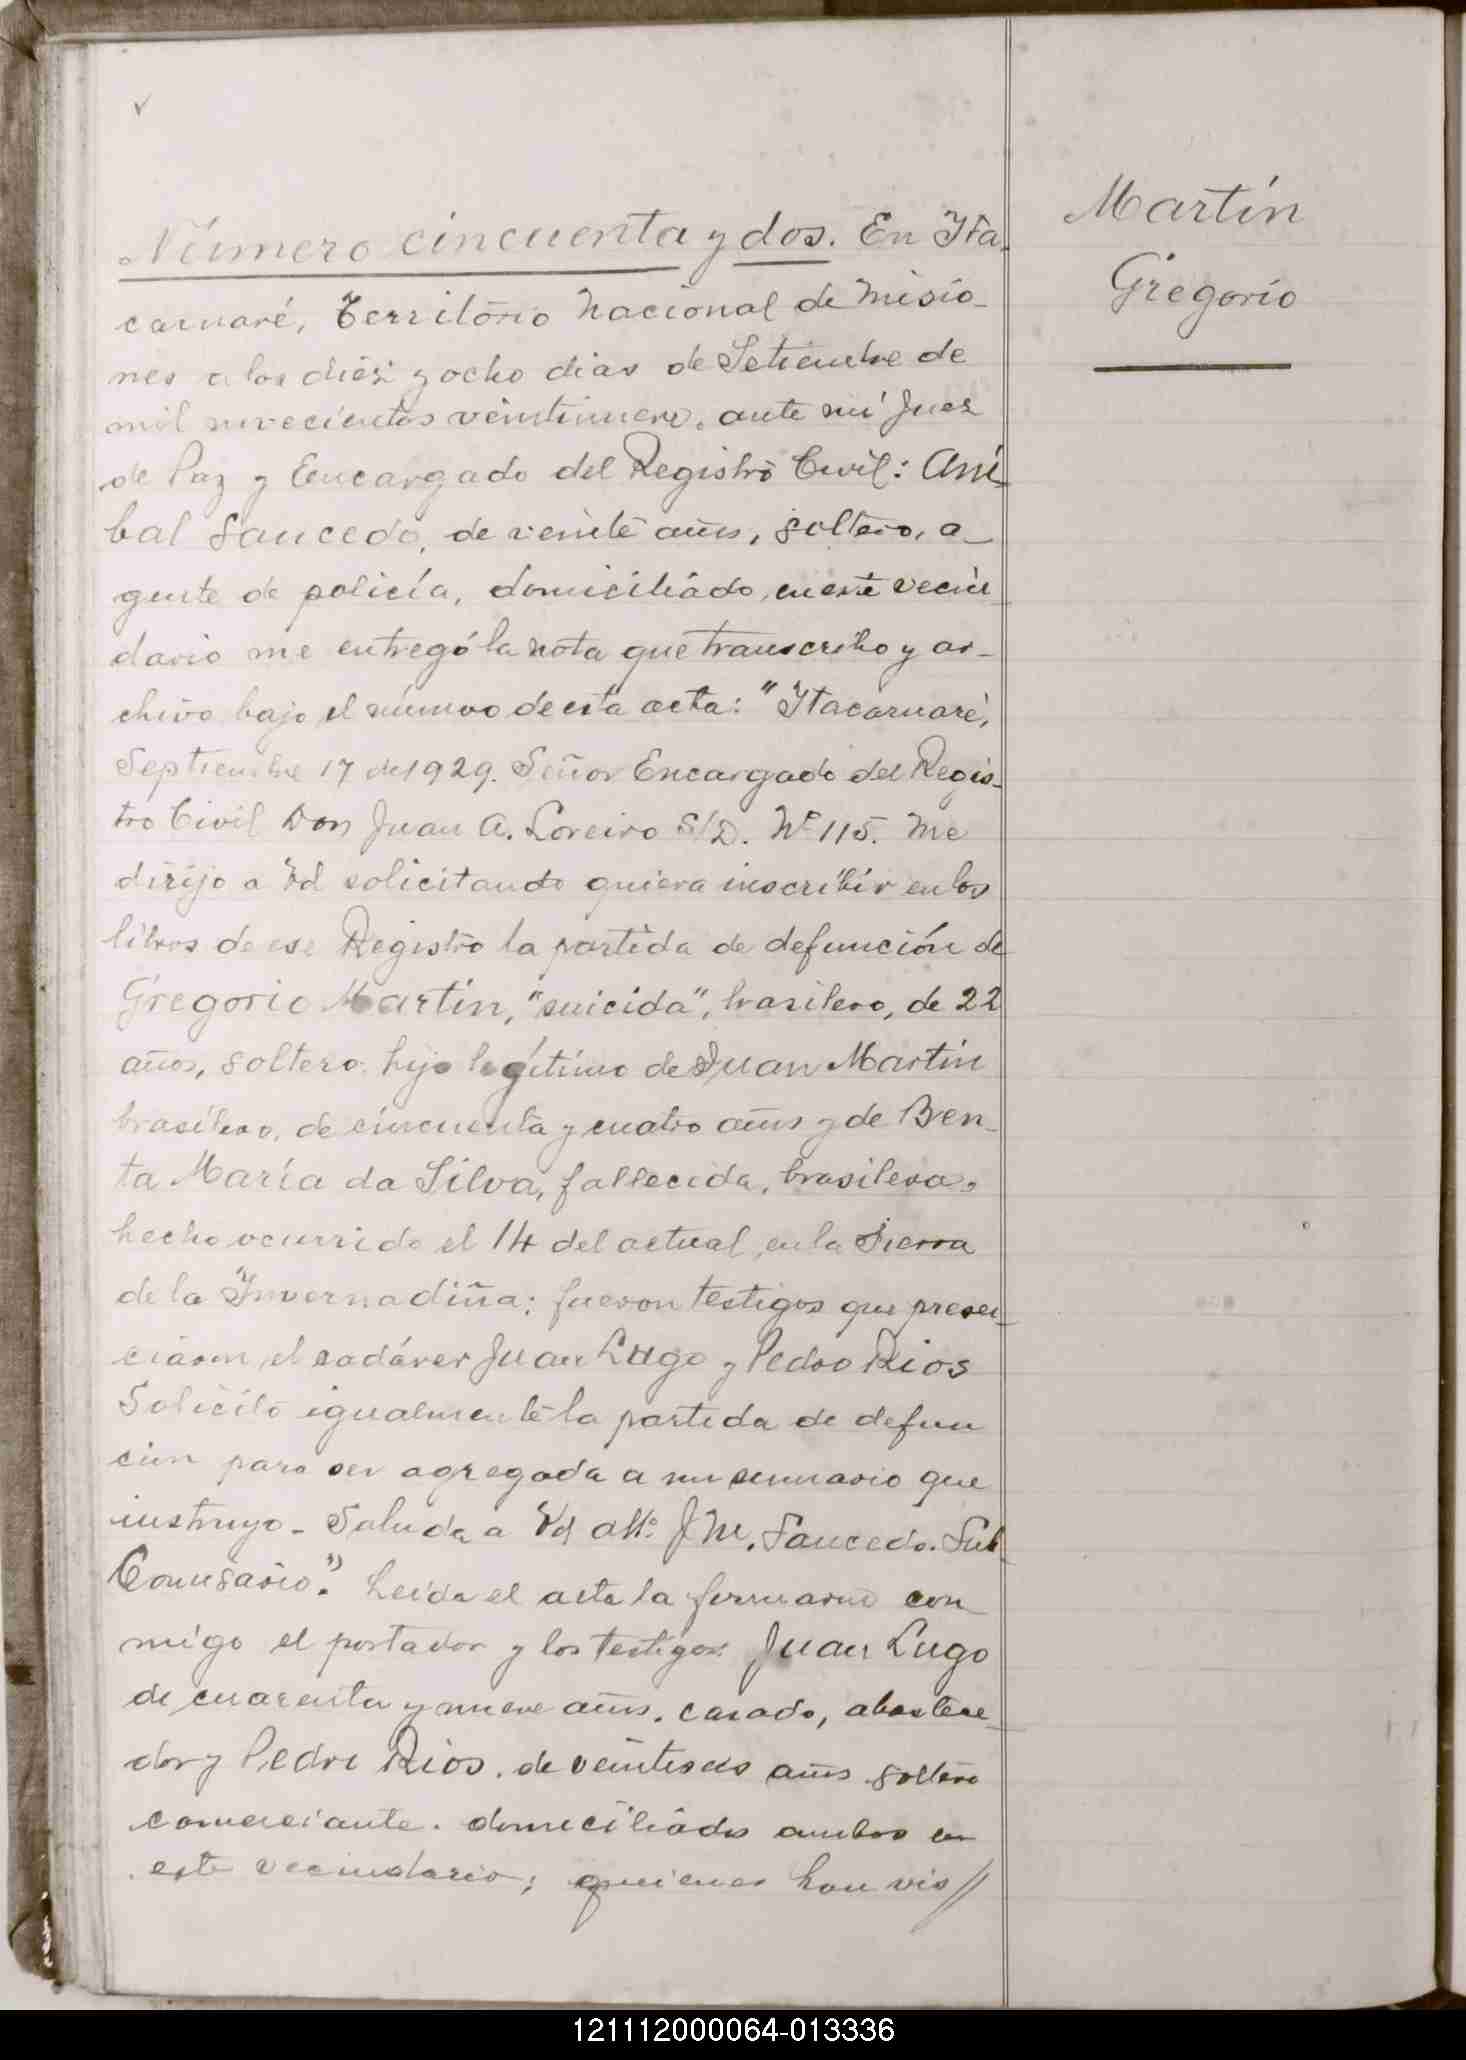 Número cincuenta y dos. En Ita-
caruaré, Territorio Nacional de Misio-
nes a los diez y ocho dias de Setiembre de
mil novecientos veintinueve, ante mí Juez
de Paz y Encargado del Registro Civil: Aní-
bal Saucedo, de veinte años, soltero, a-
gente de policía, domiciliado, en este vecin-
dario me entregó la nota que transcribo y ar-
chivo bajo el número de esta acta: "Itacaruaré,
Septiembre 17 de 1929. Señor Encargado del Regis-
tro Civil Don Juan A. Loreiro S/D. Nº 115. Me
dirijo a Vd solicitando quiera inscribir en los
libros de ese Registro la partida de defunción de
Gregorio Martín, "suicida", brasilero, de 22
años, soltero, hijo legítimo de Juan Martín
brasilero, de cincuenta y cuatro años y de Ben-
ta María da Silva, fallecida, brasilera,
hecho ocurrido el 14 del actual, en la Sierra
de la "Invernadiña; fueron testigos que presen-
ciaron el cadáver Juan Lugo y Pedro Rios
Solicito igualmente la partida de defun
ción para ser agregada a un sumario que
instruyo - Saluda a Vd atto: J. M. Saucedo. Sub-
Comisario." Leida el acta la firmaron con
migo el portador y los testigos: Juan Lugo
de cuarenta y nueve años, casado, abastece-
dor y Pedro Rios, de veintiseis años soltero
comerciante. domiciliados ambos en
este vecindario; quienes han vis//
Martín
Gregorio
121112000064-013336